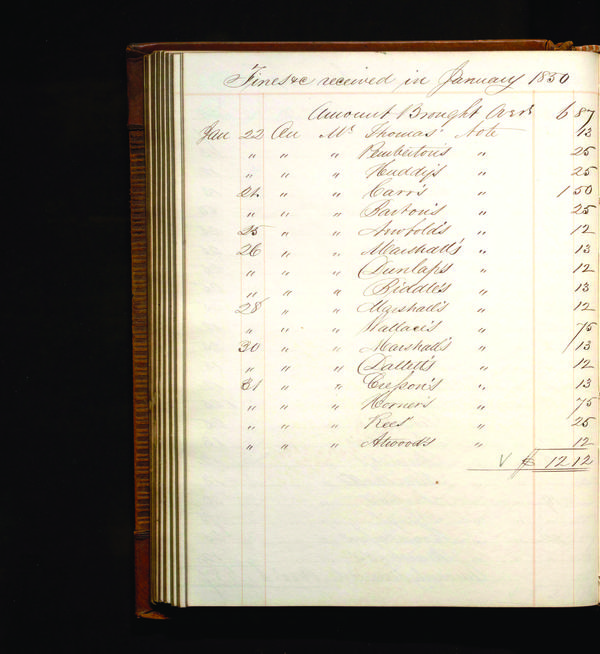 Fines &c received in January 1850
Amount Brought Over 6 87
Jan 22 On Mr Thomas' Note 13
" " " Pemberton's " 25
" " " Huddy's " 25
24 " " Carr's " 1 50
" " " Barton's " 25
25 " " Arnold's " 12
26 " " Marshall's " 13
" " " Dunlap's " 12
" " " Riddle's " 13
28 " " Marshall's " 12
" " " Wallace's " 75
30 " " Marshall's " 13
" " " Dallett's " 12
31 " " Cresson's " 13
" " " Horner's " 75
" " " Rees' " 25
" " " Atwood's " 12
√ $ 12 12